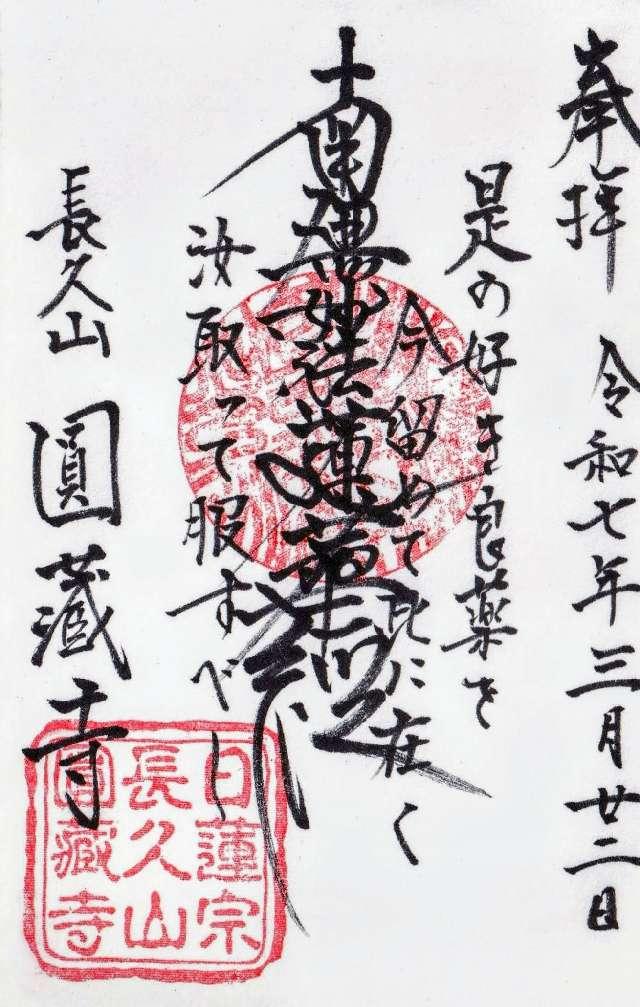 奉拝 令和七年三月廿二日
是の好き良薬を
今留めて此に在く
南無妙法蓮華経
汝取って服すべし
長久山 圓蔵寺
日蓮宗
長久山
圓藏寺